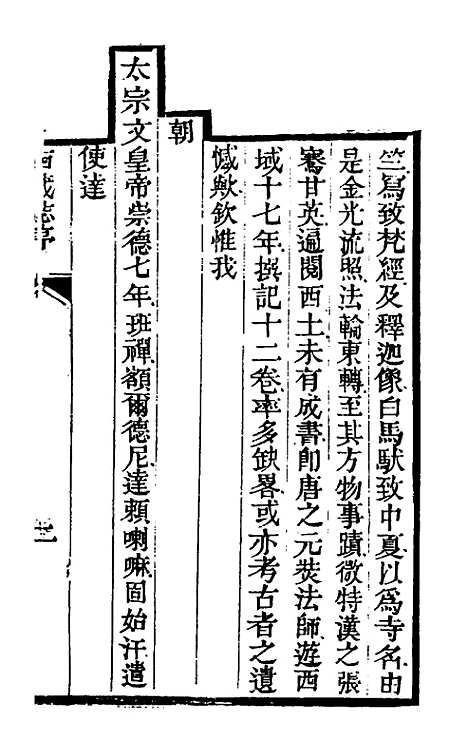 竺寫致梵經及釋迦像白馬馱致中夏以爲寺名由
是金光流照法輪東轉至其方物事蹟微特漢之張
騫甘英遍閱西土未有成書卽唐之元奘法師遊西
域十七年撰記十二卷率多缺畧或亦考古者之遺
憾歟欽惟我
朝
太宗文皇帝崇德七年班禪額爾德尼達賴喇嘛固始汗遣
使達
西藏志序